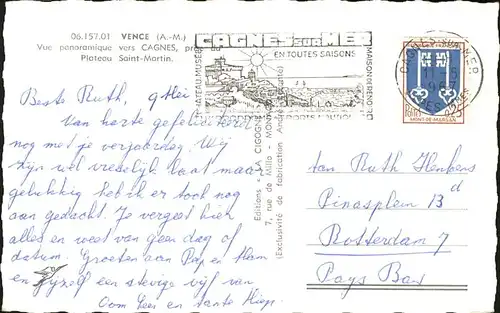 06.157.01 VENCE (A.-M.)
Vue panoramique vers CAGNES, pr
Plateau Saint-Martin.
CAGNES SUR MER
EN TOUTES SAISONS
CHATEAU MUSÉE
MAISON DE RENOIR
CAGNES-SUR-MER
11-5
1967
MONT-DE-MARSAN
Editions « LA CIGOGNE »
7, rue de Millo - MON
(Exclusivité de fabrication André
Beste Ruth, 9 Mei
Van harte gefeliciteerd
nog met je verjaardag. Wij
zijn wel vreselijk laat maar
gelukkig heb ik er toch nog
aan gedacht. Je vergeet hier
alles en weet van geen dag of
datum. Groeten aan Pap en Mam
en jijzelf een stevige vijf van
Oom Kees en tante Hiep.
tan Ruth Henkens
Pinasplein 13 d
Rotterdam 7
Pays Bas